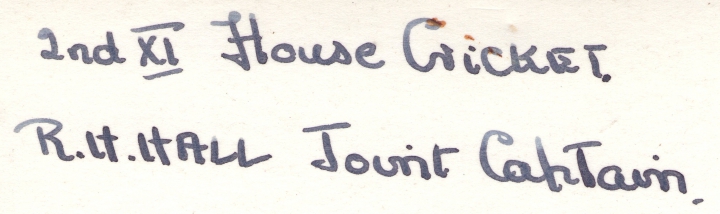 2nd XI House Cricket.
R.H.HALL Joint Captain.